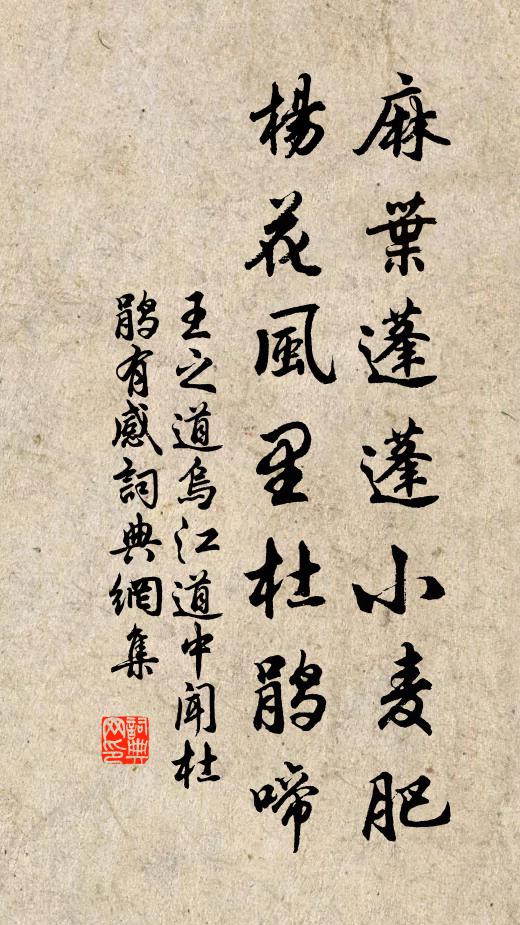 麻葉蓬蓬小麦肥
楊花風里杜鵑啼
王之道烏江道中聞杜
鵑有感詞典網集
詞典
网印